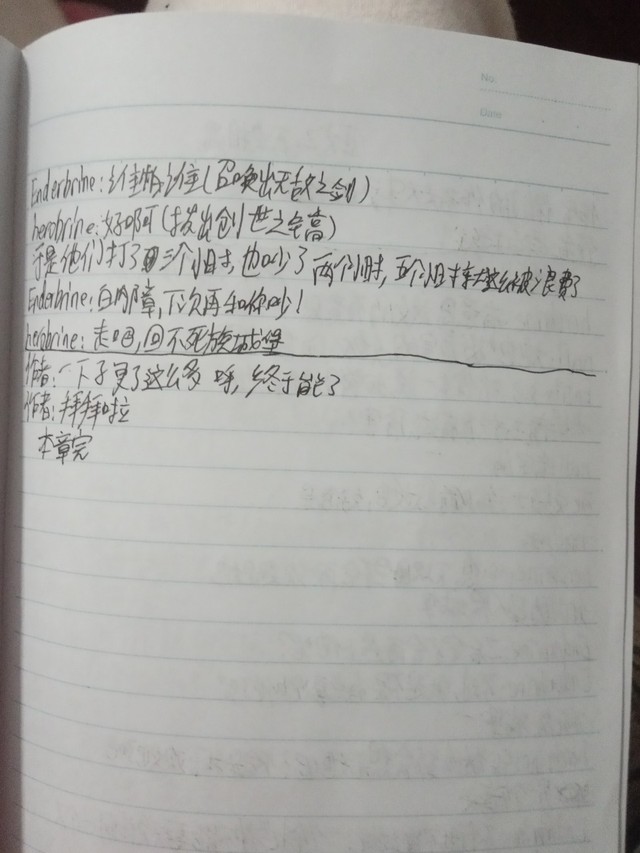 No.
Date
Enderbrine:谁怕谁(召唤出无敌之剑)
herobrine:好啊(拔出创世之至高)
于是他们打了三个小时,也吵了两个小时,五个小时就这么被浪费了
Enderbrine:白内障,下次再和你吵!
herobrine:走吧,回不死族城堡
作者:一下子更了这么多 呼,终于能了
作者:拜拜啦
本章完